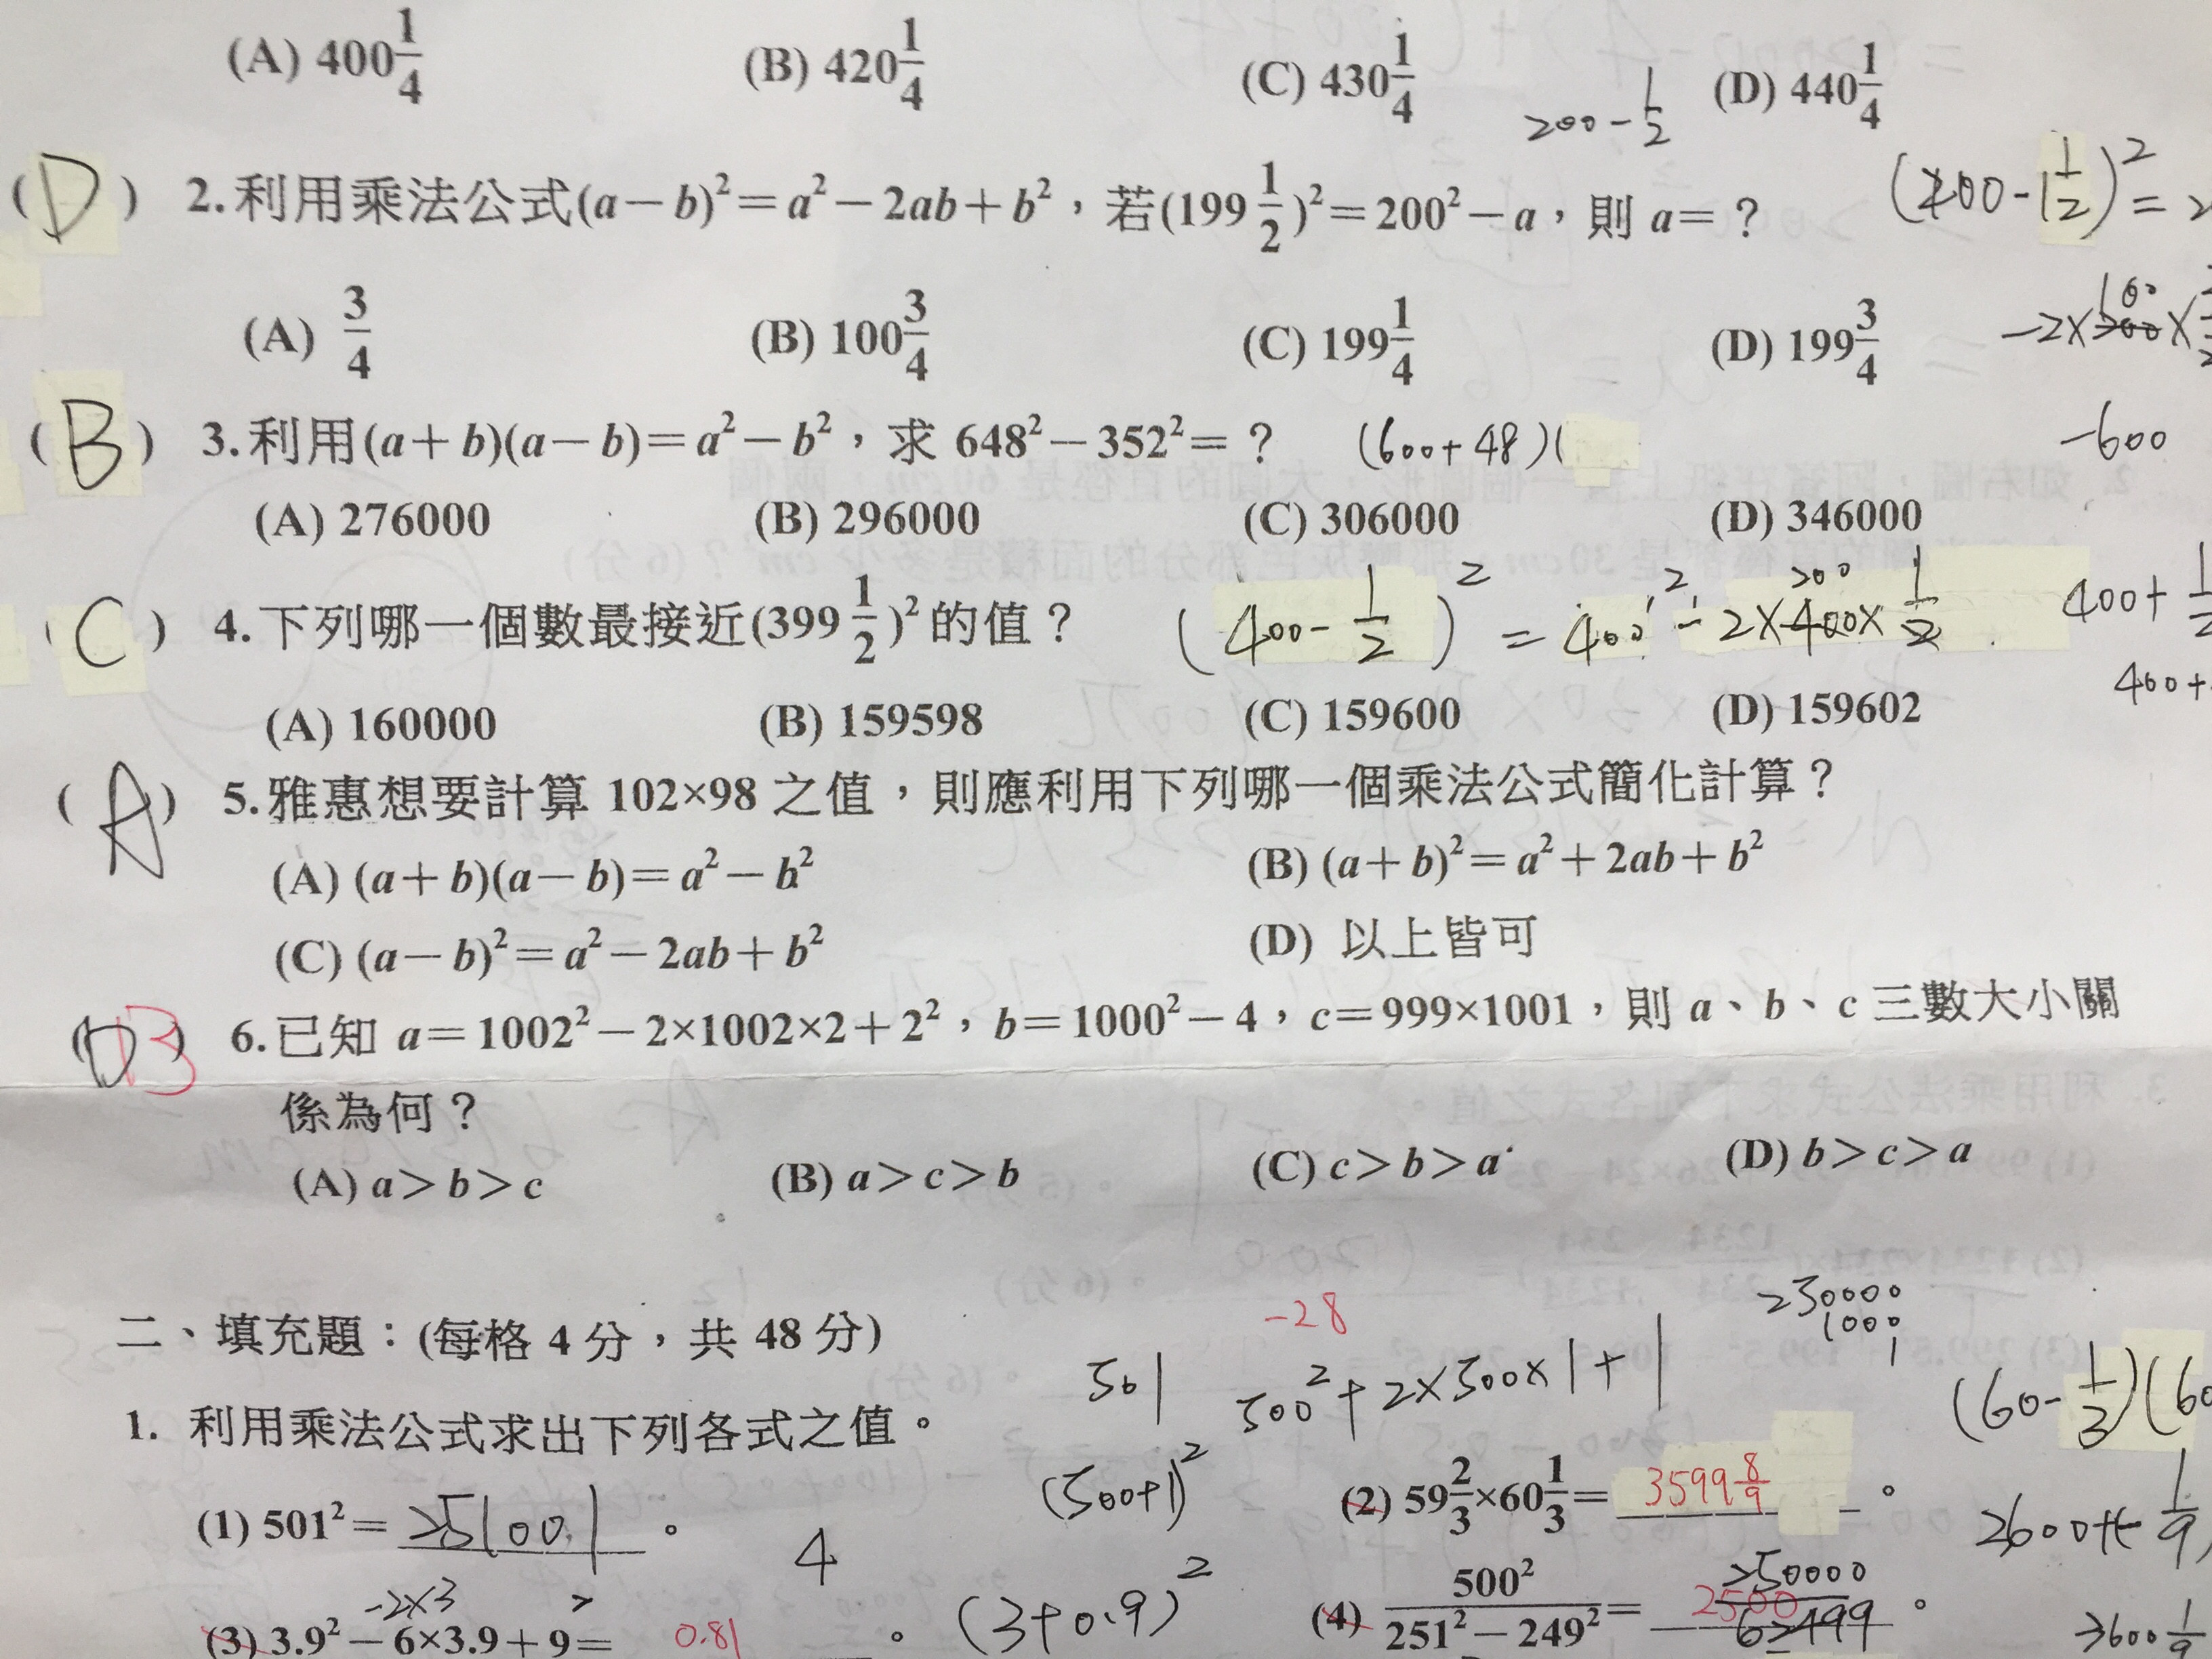 (A) 400 1/4 (B) 420 1/4 (C) 430 1/4 (D) 440 1/4
200 - 1/2
(D) 2.利用乘法公式(a－b)²＝a²－2ab＋b²，若(199 1/2)²＝200²－a，則 a＝？
(A) 3/4 (B) 100 3/4 (C) 199 1/4 (D) 199 3/4
(B) 3.利用(a＋b)(a－b)＝a²－b²，求 648²－352²＝？ (600+48)(
-600
(A) 276000 (B) 296000 (C) 306000 (D) 346000
(C) 4.下列哪一個數最接近(399 1/2)²的值？ (400-1/2)² = 400² - 2×400×1/2
200
400+
400+
(A) 160000 (B) 159598 (C) 159600 (D) 159602
(A) 5.雅惠想要計算 102×98 之值，則應利用下列哪一個乘法公式簡化計算？
(A) (a＋b)(a－b)＝a²－b² (B) (a＋b)²＝a²＋2ab＋b²
(C) (a－b)²＝a²－2ab＋b² (D) 以上皆可
(D B) 6.已知 a＝1002²－2×1002×2＋2²，b＝1000²－4，c＝999×1001，則 a、b、c 三數大小關
係為何？
(A) a＞b＞c (B) a＞c＞b (C) c＞b＞a (D) b＞c＞a
-28
250000
1000
1
二、填充題：(每格 4 分，共 48 分)
501 500²+2×500×1+1
1. 利用乘法公式求出下列各式之值。
(500+1)²
(1) 501²＝251001。 (2) 59 2/3×60 1/3＝3599 8/9。
4
-2×3
(3) 3.9²－6×3.9＋9＝0.81。 (3+0.9)² (4) 500²/(251²－249²)＝2500。
250000
3600 1/9